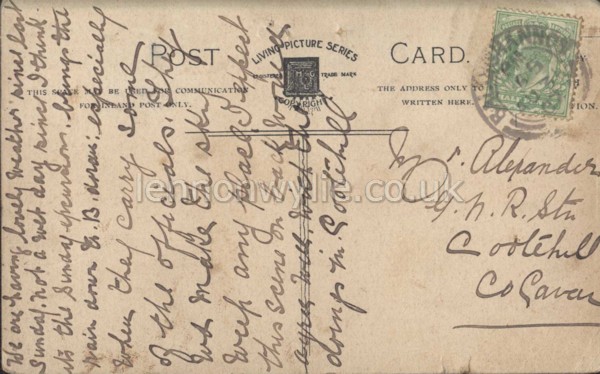 POST CARD.
LIVING PICTURE SERIES
REGISTERED TRADE MARK
COPYRIGHT
THIS SPACE MAY BE USED FOR COMMUNICATION
FOR INLAND POST ONLY.
THE ADDRESS ONLY TO
WRITTEN HERE.
We are having lovely weather since last
Sunday. Not a wet day since. I think
its the Sunday excursions brings the
rain down G.B.
when they carry some
of the officials. It
wd make the sky
weep any place I expect
this scene on back
doings in Cootehill
Mr. Alexander
G.N.R. Stn
Cootehill
Co Cavan
lennonwylie.co.uk